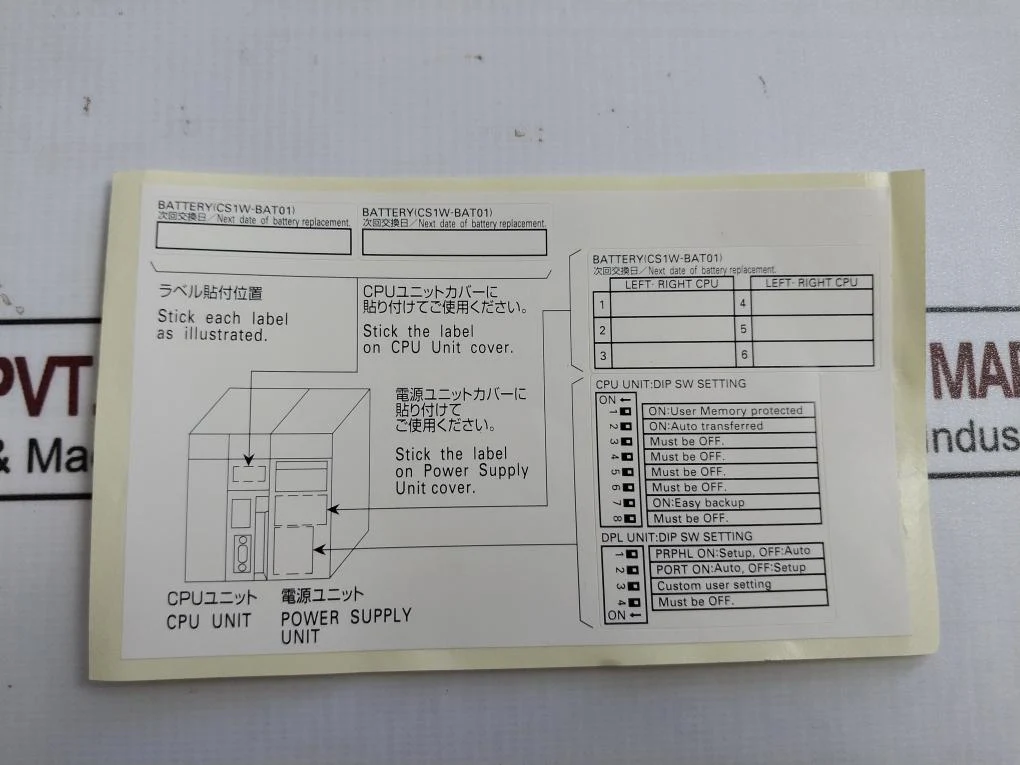 BATTERY(CS1W-BAT01)
次回交換日/Next date of battery replacement.
BATTERY(CS1W-BAT01)
次回交換日/Next date of battery replacement.
BATTERY(CS1W-BAT01)
次回交換日/Next date of battery replacement.
LEFT- RIGHT CPU
LEFT- RIGHT CPU
1
4
2
5
3
6
ラベル貼付位置
Stick each label
as illustrated.
CPUユニットカバーに
貼り付けてご使用ください。
Stick the label
on CPU Unit cover.
電源ユニットカバーに
貼り付けて
ご使用ください。
Stick the label
on Power Supply
Unit cover.
CPUユニット
CPU UNIT
電源ユニット
POWER SUPPLY
UNIT
CPU UNIT:DIP SW SETTING
ON ←
1 ON:User Memory protected
2 ON:Auto transferred
3 Must be OFF.
4 Must be OFF.
5 Must be OFF.
6 Must be OFF.
7 ON:Easy backup
8 Must be OFF.
DPL UNIT:DIP SW SETTING
1 PRPHL ON:Setup, OFF:Auto
2 PORT ON:Auto, OFF:Setup
3 Custom user setting
4 Must be OFF.
ON ←
PVT
& Ma
MAR
ndus